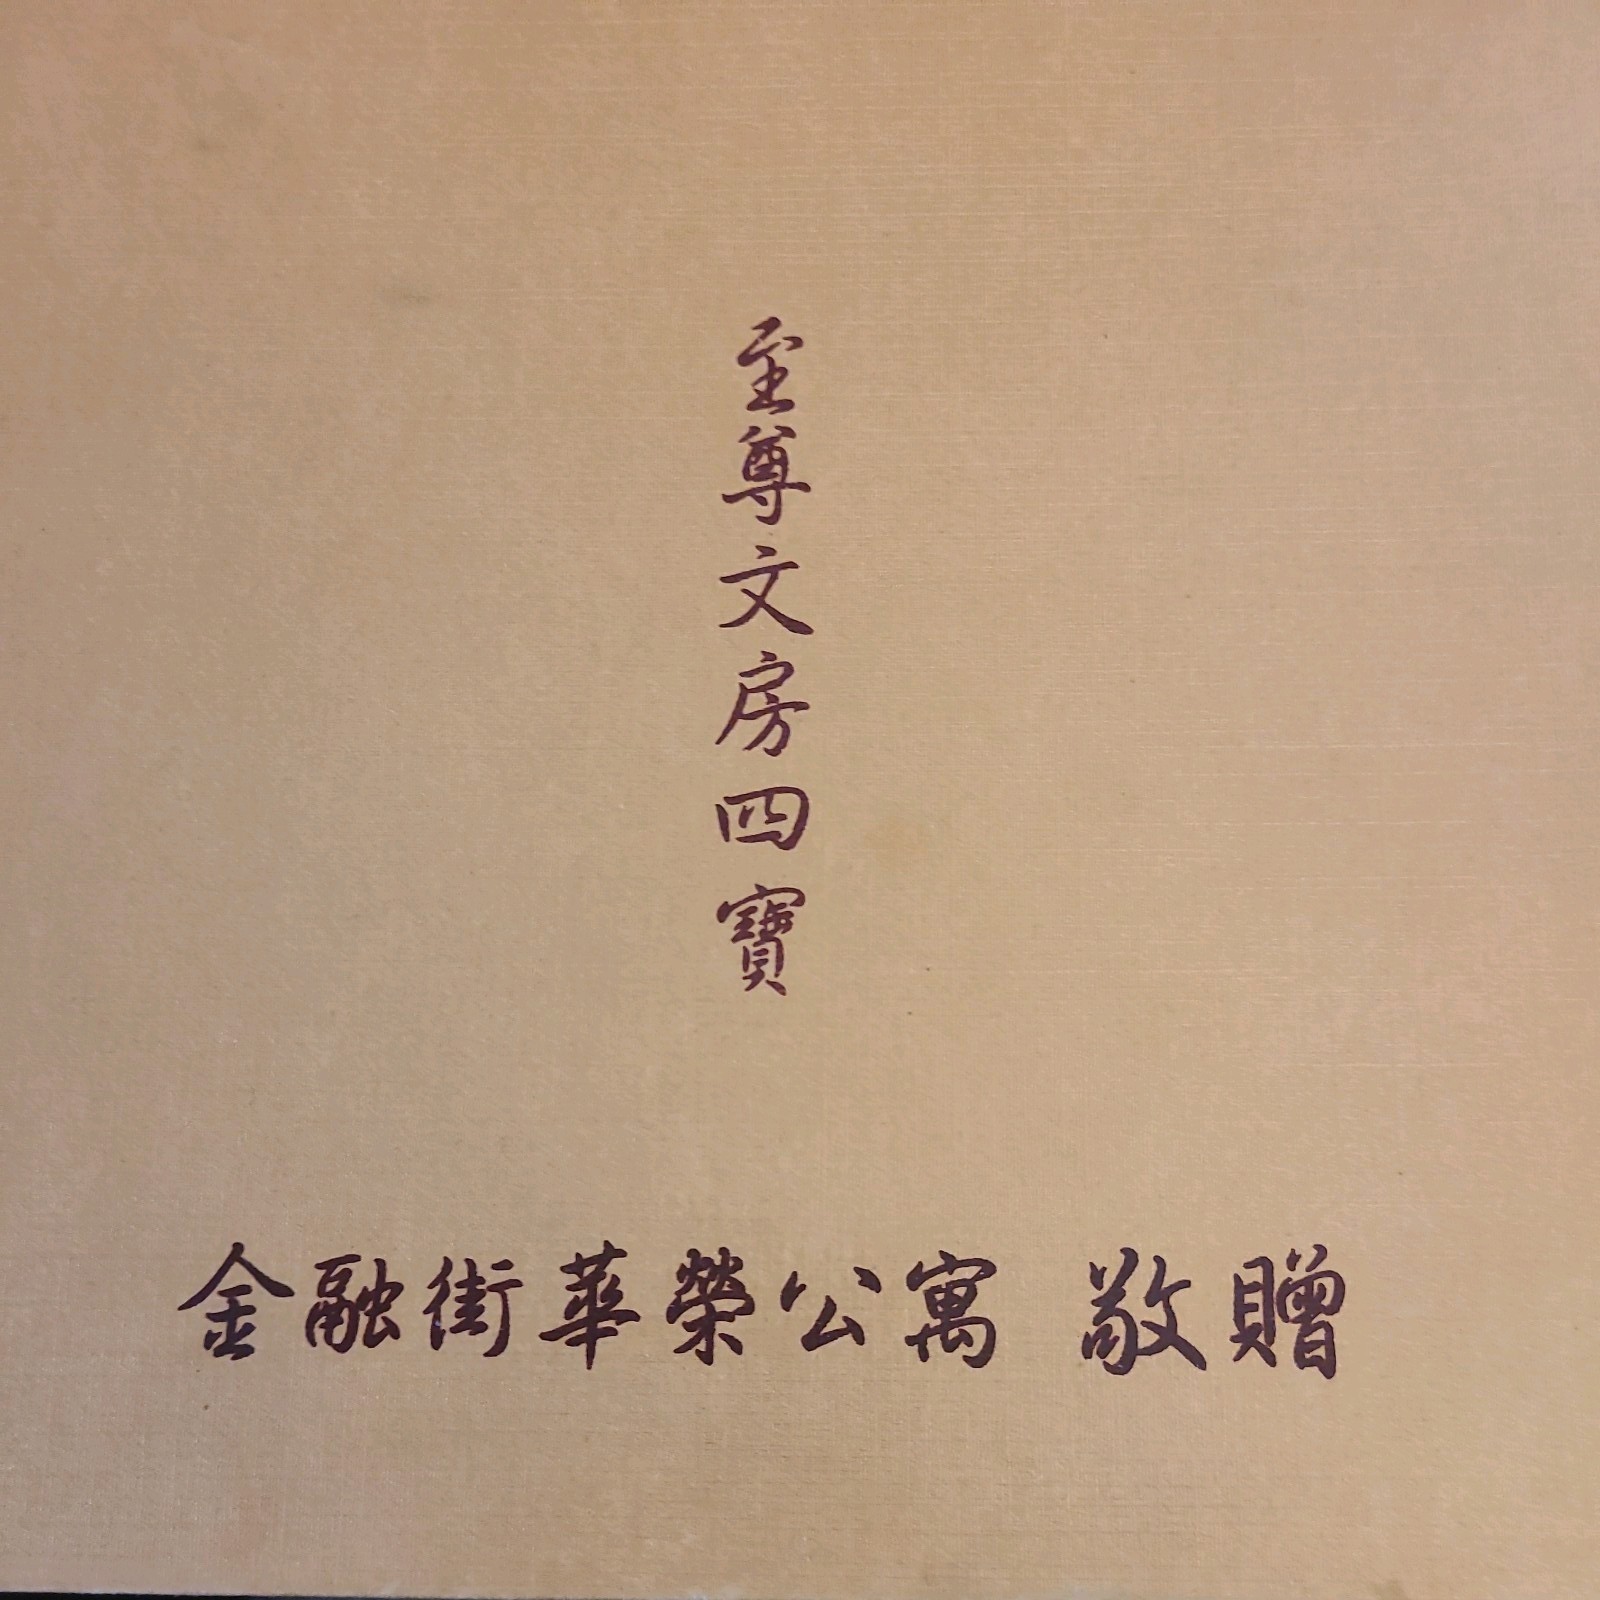 至尊文房四寶
金融街華榮公寓 敬贈